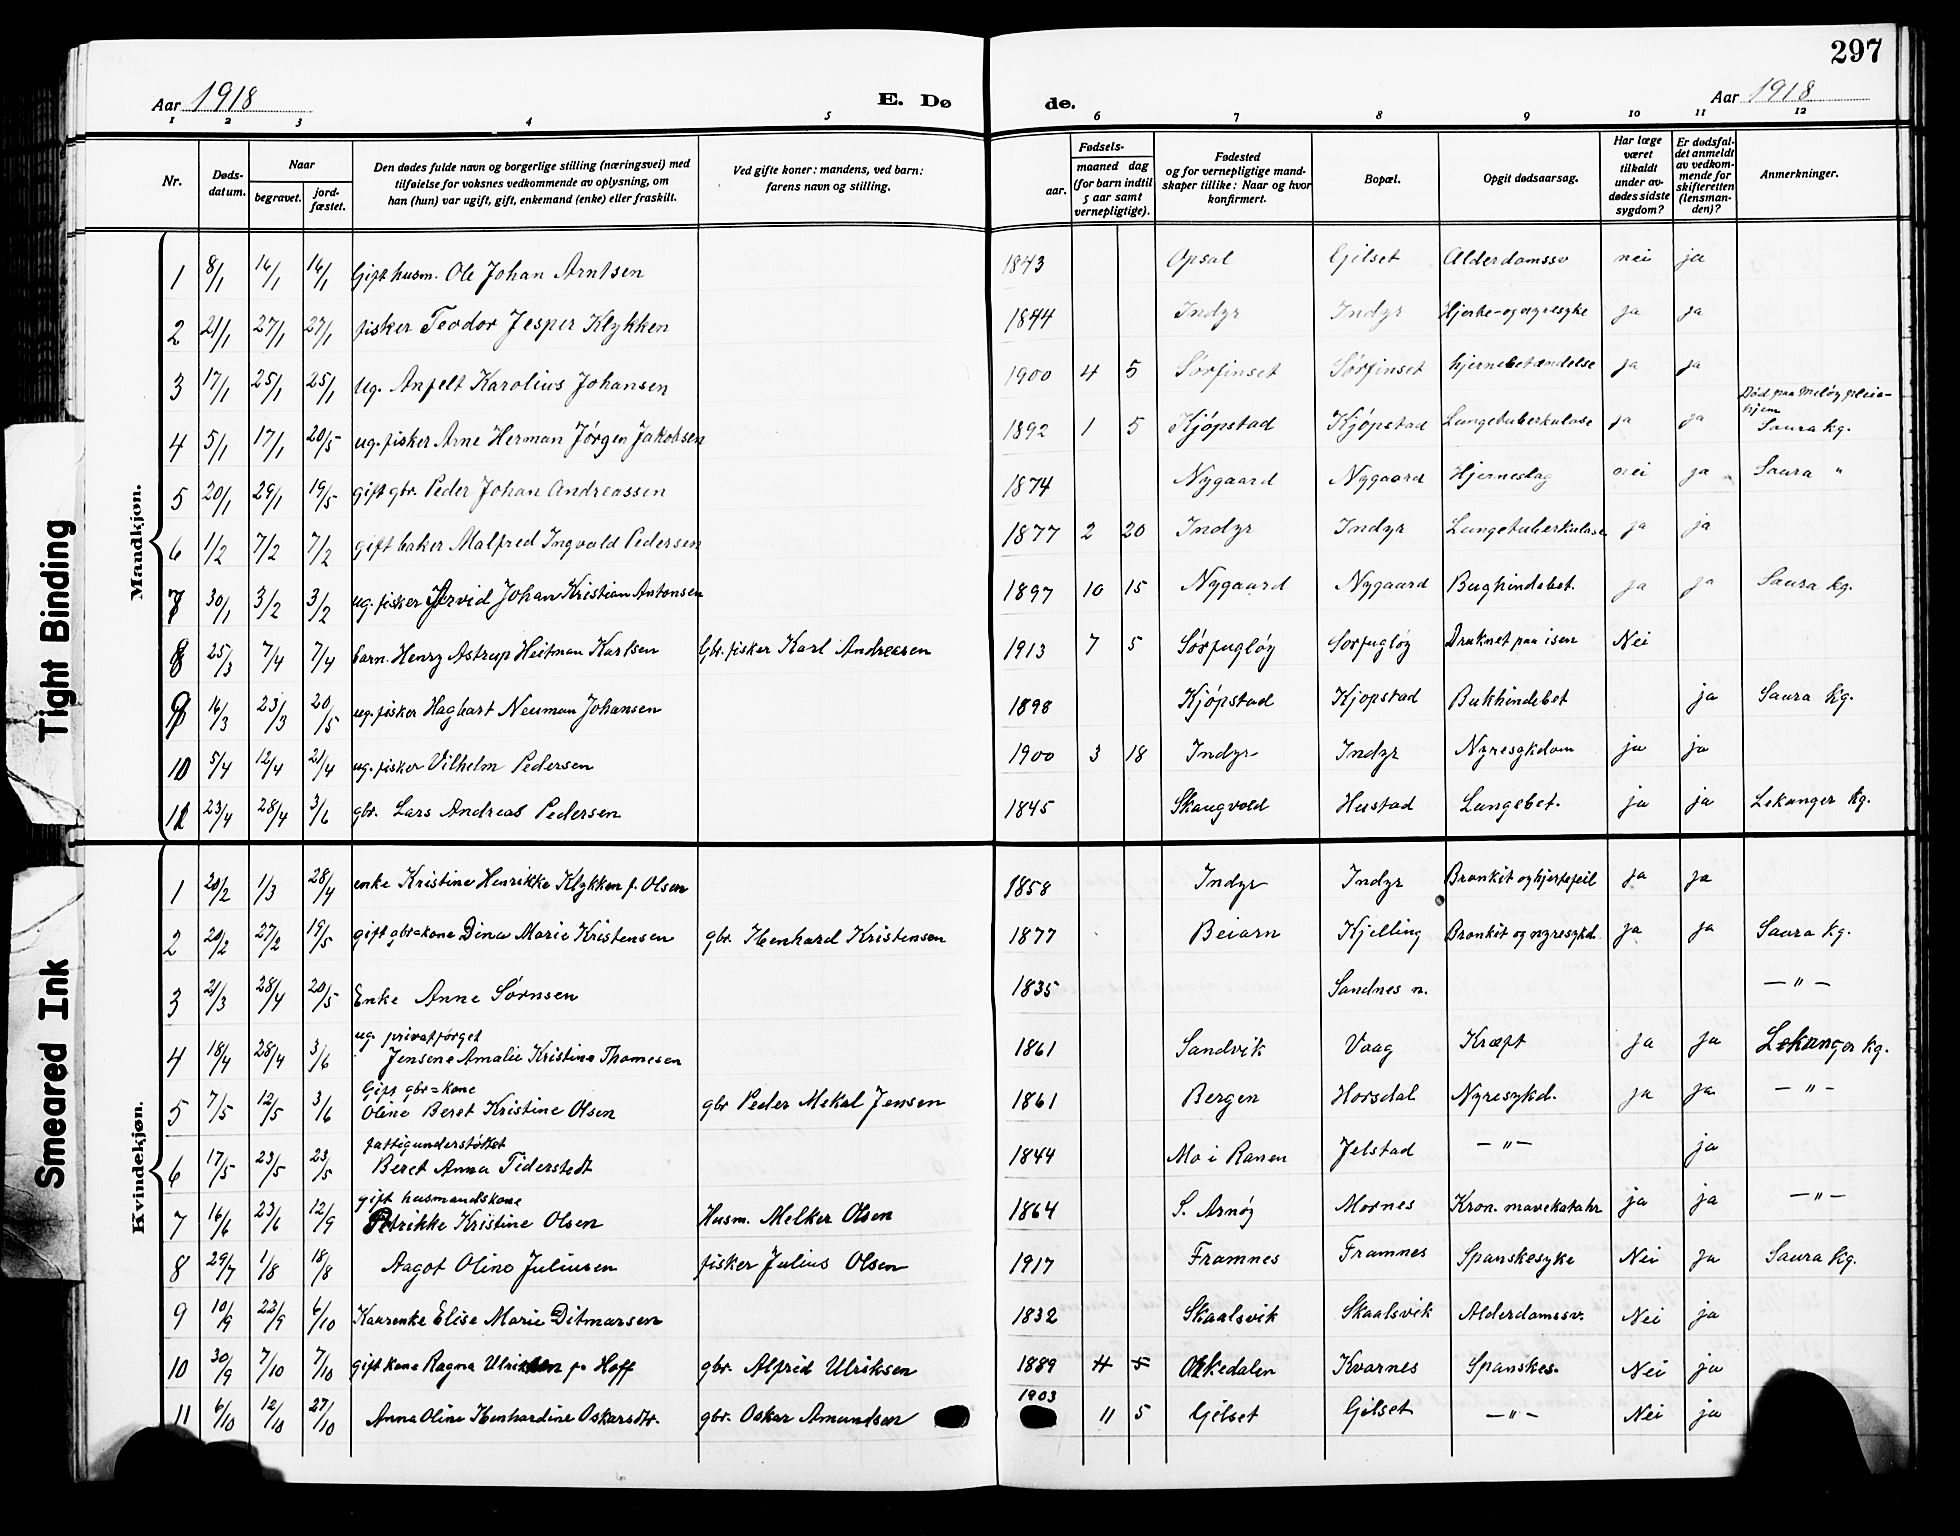 297
Aar 1918 E. Dø de. Aar 1918
1 2 3 4 5 6 7 8 9 10 11 12
Nr. Døds-datum. Naar begravet. jord-fæstet. Den dødes fulde navn og borgerlige stilling (næringsvei) med tilføielse for voksnes vedkommende av oplysning, om han (hun) var ugift, gift, enkemand (enke) eller fraskilt. Ved gifte koner: mandens, ved barn: farens navn og stilling. Fødsels- aar. maaned dag (for barn indtil 5 aar samt vernepligtige). Fødested og for vernepligtige mand-skaper tillike: Naar og hvor konfirmert. Bopæl. Opgit dødsaarsag. Har læge været tilkaldt under av-dødes sidste sygdom? Er dødsfal-det anmeldt av vedkom-mende for skifteretten (lensman-den)? Anmerkninger.
Mandkjøn.
1 8/1 16/1 16/1 Gift husm. Ole Johan Arntsen 1843 Opsal Gilset Alderdomssv nei ja
2 21/1 27/1 27/1 fisker Teodor Jesper Klykken 1844 Indyr Indyr Hjerte- og nyresyke ja ja
3 17/1 25/1 25/1 ug. Anfelt Karolius Johansen 1900 4 5 Sørfinset Sørfinset hjernebetændelse ja ja
4 5/1 17/1 20/5 ug. fisker Arne Herman Jørgen Jakobsen 1892 1 5 Kjøpstad Kjøpstad Lungetuberkulose ja ja Død paa Meløy pleie-hjem Saura kg.
5 20/1 29/1 19/5 gift gbr. Peder Johan Andreassen 1874 Nygaard Nygaard Hjerneslag nei ja Saura "
6 1/2 7/2 7/2 gift baker Malfred Ingvald Pedersen 1877 2 20 Indyr Indyr Lungetuberkulose ja ja
7 30/1 3/2 3/2 ug. fisker Arvid Johan Kristian Antonsen 1897 10 15 Nygaard Nygaard Bughindebet. ja ja Saura kg.
8 25/3 7/4 7/4 barn. Henry Astrup Heitman Karlsen Gbr. fisker Karl Andresen 1913 7 5 Sørfugløy Sørfugløy Druknet paa isen Nei
9 16/3 23/3 20/5 ug. fisker Hagbart Neuman Johansen 1898 Kjøpstad Kjøpstad Bukhindebet ja Saura kg.
10 5/4 12/4 21/4 ug. fisker Vilhelm Pedersen 1900 3 18 Indyr Indyr Nyresykdom ja ja
11 23/4 28/4 3/6 gbr. Lars Andreas Pedersen 1845 Skaugvold Hustad Lungebet. ja ja Lekanger kg.
Kvindekjøn.
1 20/2 1/3 28/4 enke Kristine Henrikke Klykken f. Olsen 1858 Indyr Indyr Bronkit og hjertefeil ja ja
2 20/2 27/2 19/5 gift gbr=kone Dina Marie Kristensen gbr. Henhard Kristensen 1877 Beiarn Kjelling Bronkit og nyresykd. ja ja Saura kg.
3 21/3 28/4 20/5 Enke Anne Sørnsen 1835 Sandnes n. — " —
4 18/4 28/4 3/6 ug. privatforget Jensene Amalie Kristine Thomesen 1861 Sandvik Vaag Kræft ja ja Lekanger kg.
5 7/5 12/5 3/6 Gift gbr=kone Oline Beret Kristine Olsen gbr Peder Mekal Jensen 1861 Bergen Horsdal Nyresykd. ja ja — " —
6 17/5 23/5 23/5 fattigunderstøttet Beret Anna Tiderstedt 1844 Mo i Ranen Jelstad — " — ja
7 16/6 23/6 12/9 gift husmandskone Petrikke Kristine Olsen Husm. Melker Olsen 1864 S. Arnøy Mornes Kron. mavekatahr ja ja — " —
8 29/7 1/8 18/8 Aagot Oline Juliusen fisker Julius Olsen 1917 Framnes Framnes Spanskesyke Nei Ja Saura kg.
9 10/9 22/9 6/10 Kaarenke Elise Marie Ditmarsen 1832 Skaalsvik Skaalsvik Alderdomssv. Nei ja
10 30/9 7/10 7/10 gift kone Ragna Ulriksen f. Hoff gbr. Alfred Ulriksen 1889 4 5 Orkedalen Kvarnes Spanskes. Nei ja
11 6/10 12/10 27/10 Anna Oline Henhardine Oskarsdtr. gbr. Oskar Amundsen 1903 11 5 Gilset Gilset — " — Nei ja
Tight Binding
Smeared Ink